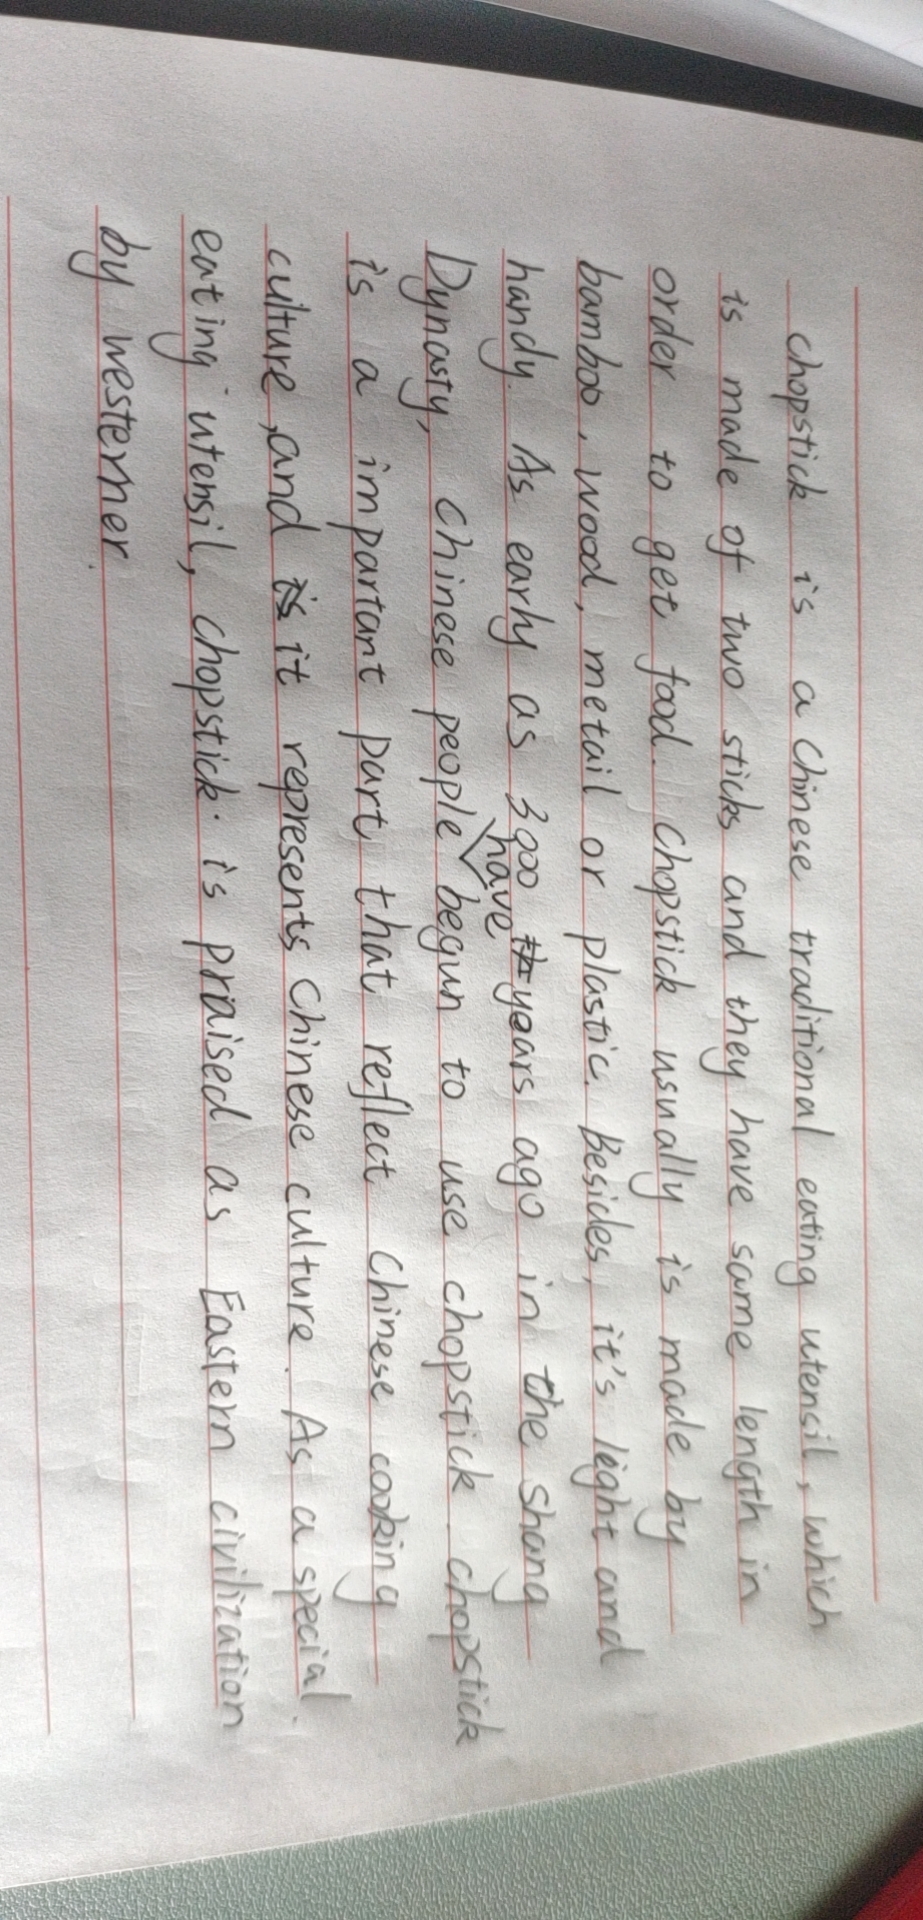 chopstick is a Chinese traditional eating utensil, which
is made of two sticks and they have same length in
order to get food. Chopstick usually is made by
bamboo, wood, metail or plastic. Besides, it's leght and
handy. As early as 3000 years ago in the Shang
have
Dynasty, Chinese people begun to use chopstick. chopstick
is a impartant part that reflect Chinese cooking
culture, and it represents Chinese culture. As a special
eating utensil, chopstick is praised as Eastern civilization
by westerner.